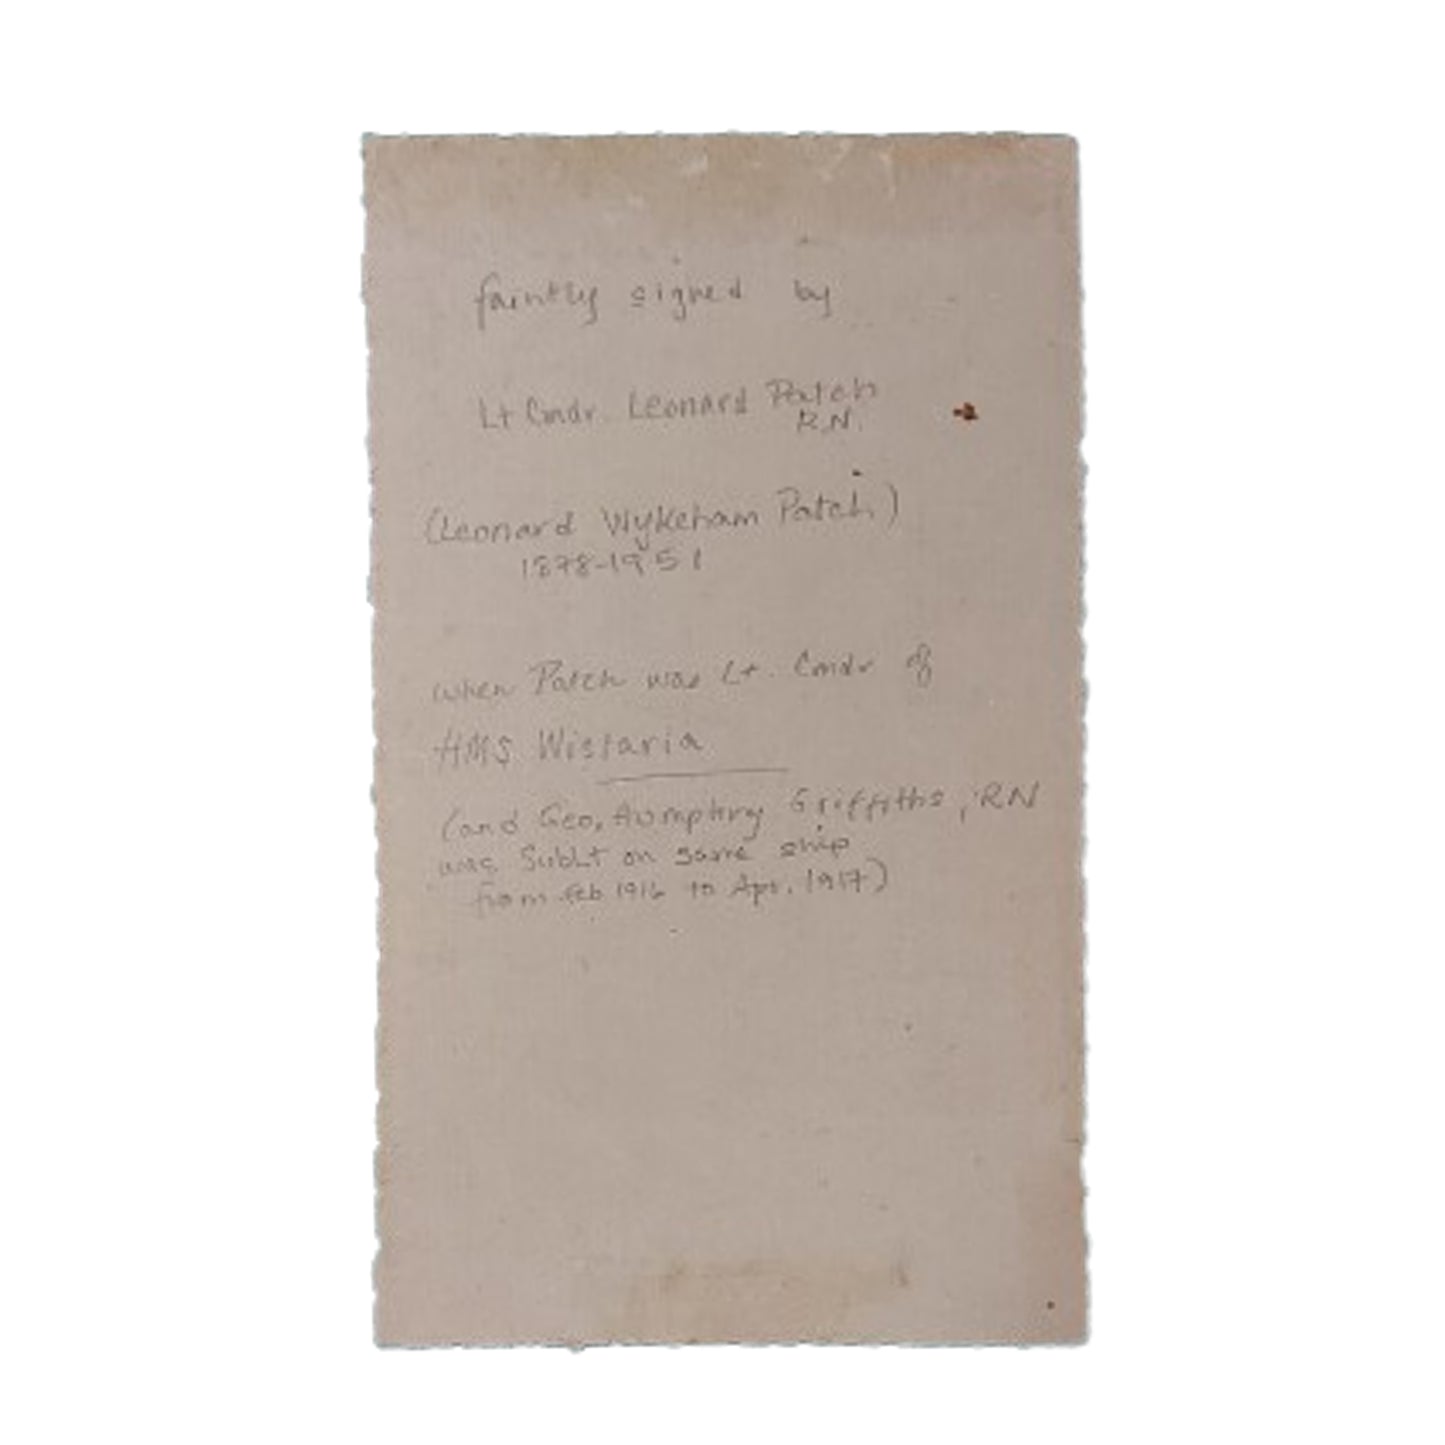 faintly signed by
Lt Cmdr. Leonard Patch
R.N.
(Leonard Wykeham Patch)
1878-1951
when Patch was Lt. Cmdr of
HMS Wistaria
(and Geo, Humphry Griffiths, RN
was SubLt on same ship
from feb 1916 to Apr. 1917)